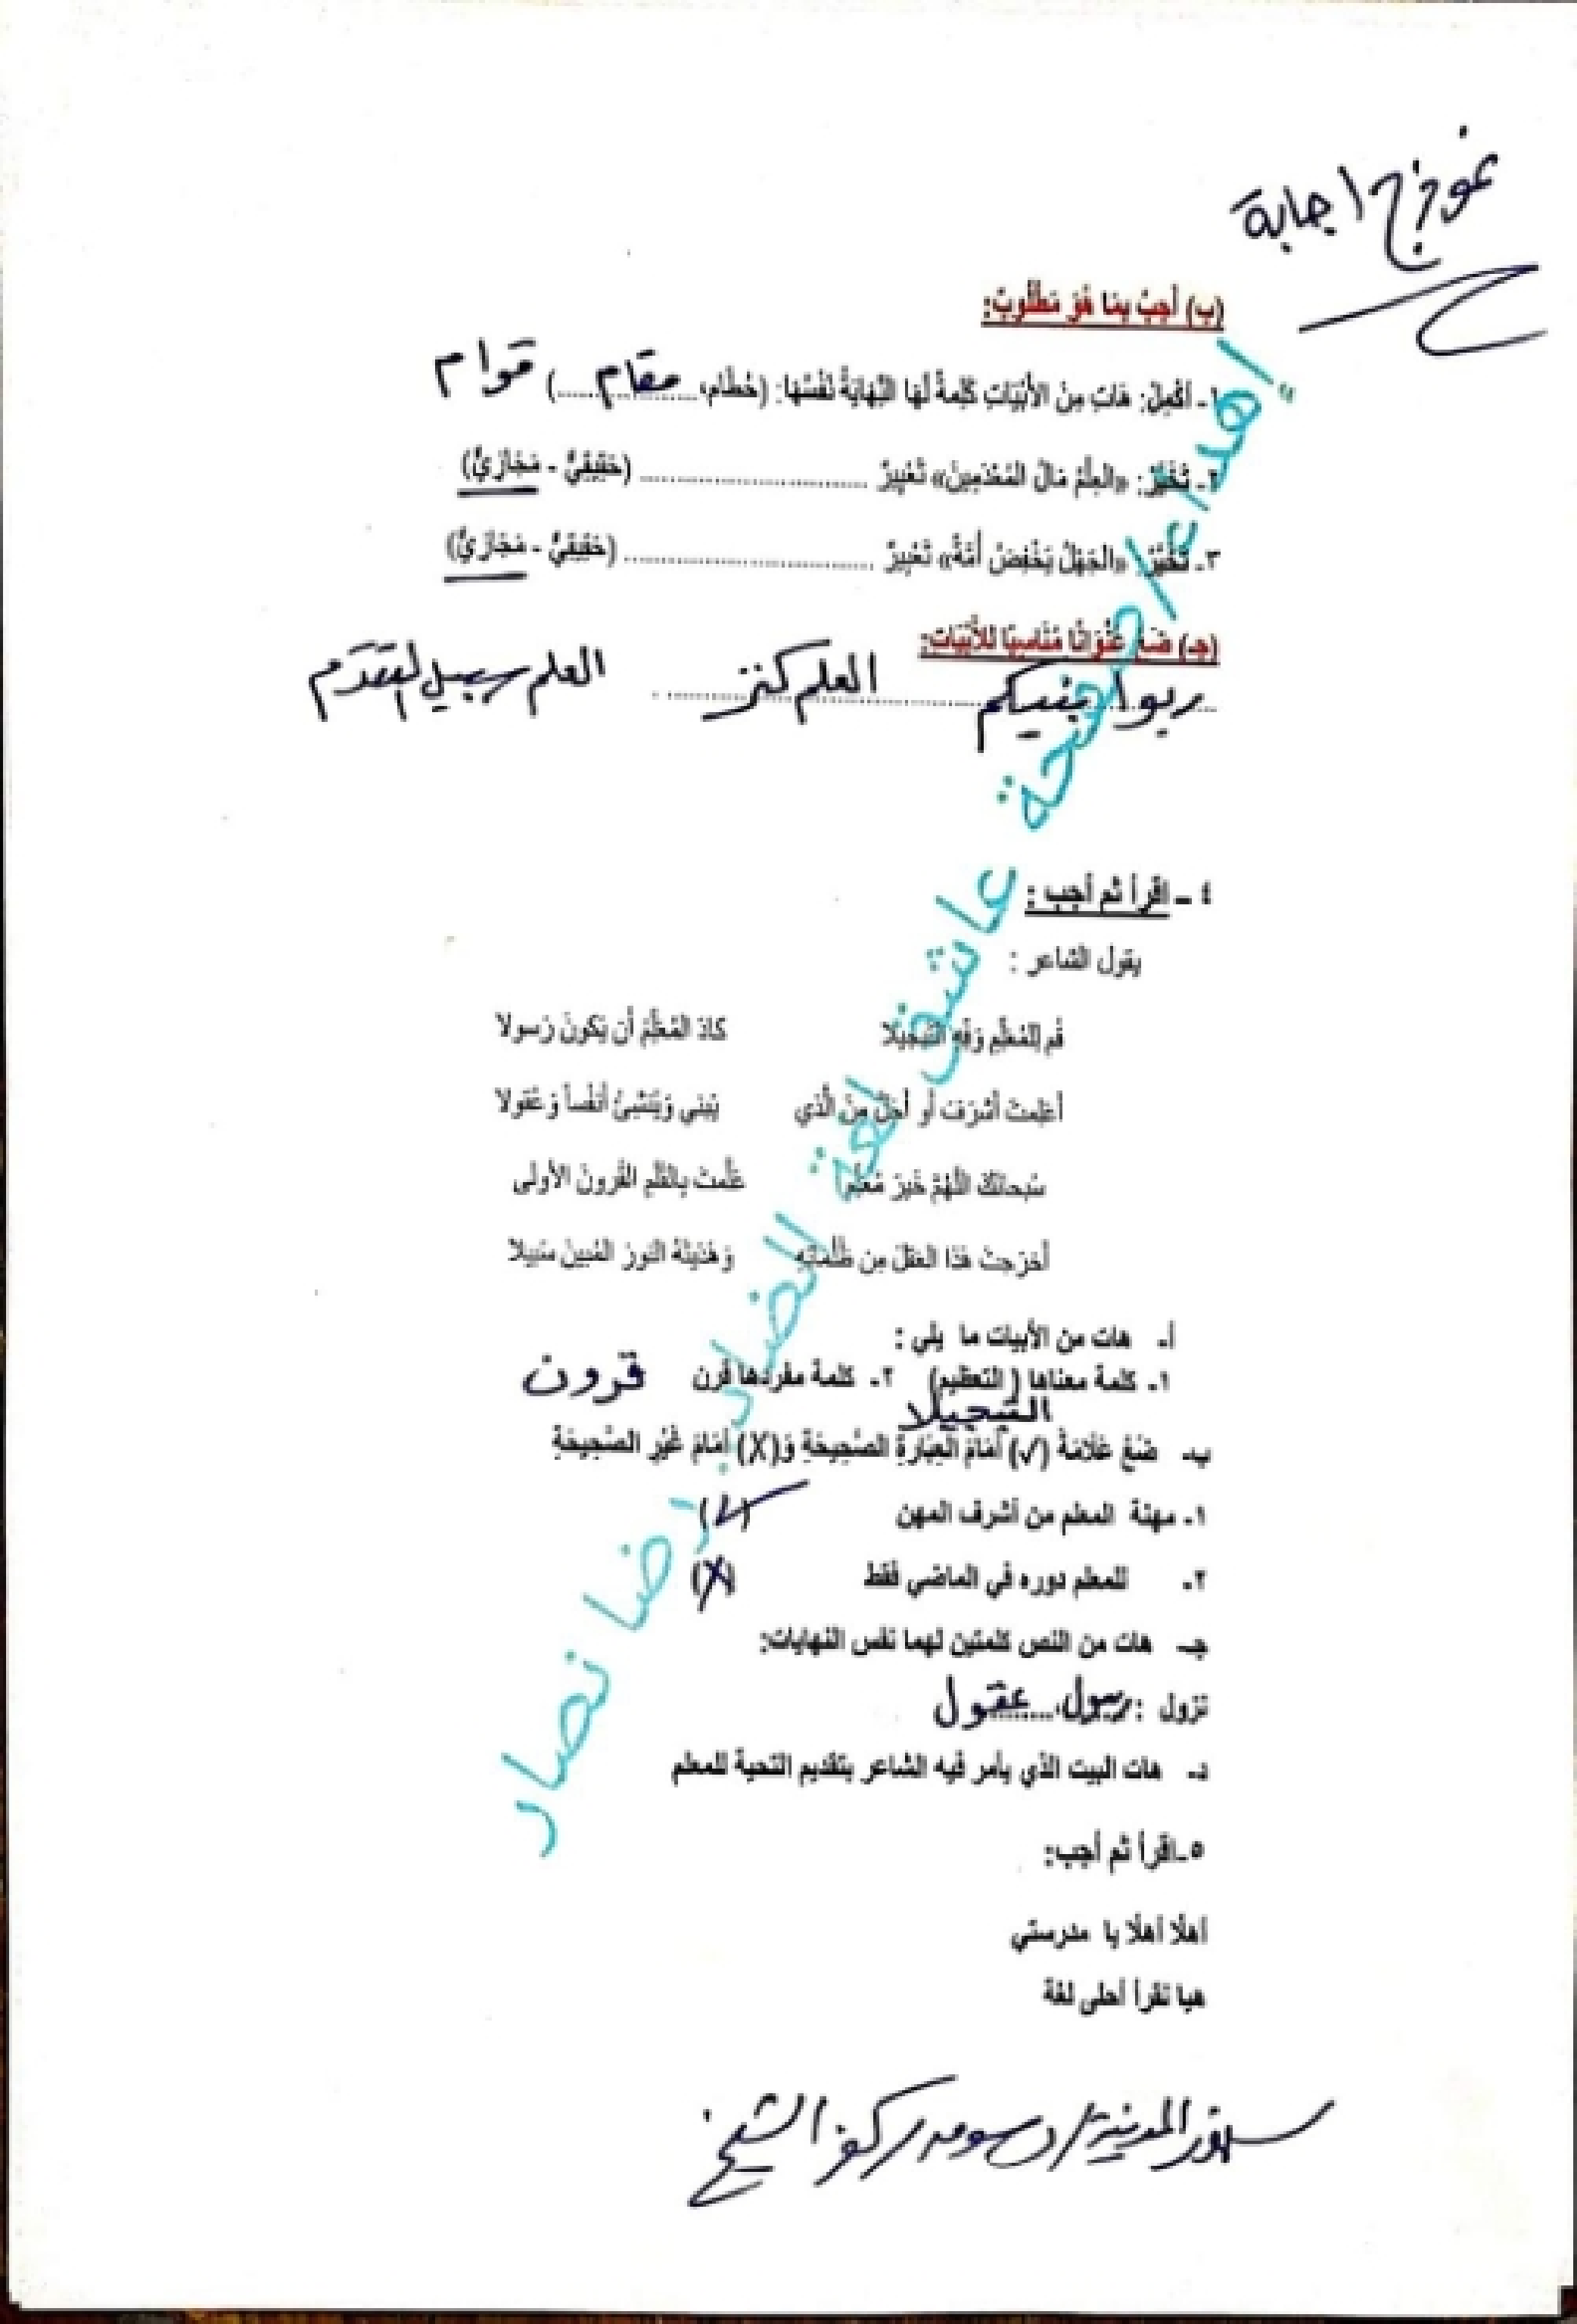 نموذج اجابة
(ب) أَجِبْ بِمَا هُوَ مَطْلُوبٌ:
١- أَكْمِلْ: هَاتِ مِنَ الأَبْيَاتِ كَلِمَةً لَهَا النِّهَايَةُ نَفْسُهَا: (حُطَام، مقام) قوام
٢- تَخَيَّرْ: «العِلْمُ مَالُ المُعْدَمِينَ» تَعْبِيرٌ (حَقِيقِيٌّ - مَجَازِيٌّ)
٣- تَخَيَّرْ: «الجَهْلُ يَخْفِضُ أُمَّةً» تَعْبِيرٌ (حَقِيقِيٌّ - مَجَازِيٌّ)
(جـ) ضَعْ عُنْوَانًا مُنَاسِبًا لِلأَبْيَاتِ:
ربوا بنيكم العلم كنز العلم سبيل التقدم
٤ – اقرأ ثم أجب :
يقول الشاعر :
قُم لِلمُعَلِّمِ وَفِّهِ التَبجيلا كادَ المُعَلِّمُ أَن يَكونَ رَسولا
أَعَلِمتَ أَشرَفَ أَو أَجَلَّ مِنَ الَّذي يَبني وَيُنشِئُ أَنفُساً وَعُقولا
سُبحانَكَ اللَهُمَّ خَيرَ مُعَلِّمٍ عَلَّمتَ بِالقَلَمِ القُرونَ الأولى
أَخرَجتَ هَذا العَقلَ مِن ظُلُماتِهِ وَهَدَيتَهُ النورَ المُبينَ سَبيلا
أ- هات من الأبيات ما يلي :
١- كلمة معناها (التعظيم) ٢- كلمة مفردها قرن قرون
التبجيلا
ب- ضَعْ عَلَامَةَ (√) أَمَامَ العِبَارَةِ الصَّحِيحَةِ وَ(X) أَمَامَ غَيْرِ الصَّحِيحَةِ
١- مهنة المعلم من أشرف المهن (√)
٢- للمعلم دوره في الماضي فقط (X)
جـ- هات من النص كلمتين لهما نفس النهايات:
نزول : رسول، عقول
د- هات البيت الذي يأمر فيه الشاعر بتقديم التحية للمعلم
٥-اقرأ ثم أجب:
أهلًا أهلًا يا مدرستي
هيا نقرأ أحلى لغة
سنهور المدينة / دسوق / كفر الشيخ
إهداء / صفحة عاشق لغة الضاد . رضا نصار